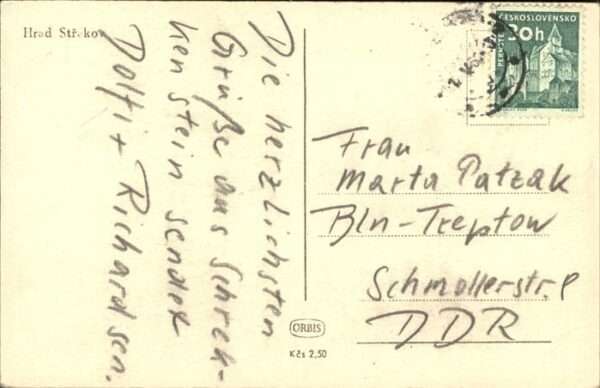 Hrad Střekov
Die herzlichsten
Grüße aus Schrek-
kenstein sendet
Dolfi + Richard sen.
ČESKOSLOVENSKO
30h
PERNŠTEJN
Frau
Marta Patzak
Bln-Treptow
Schmollerstr.
DDR
ORBIS
Kčs 2,50